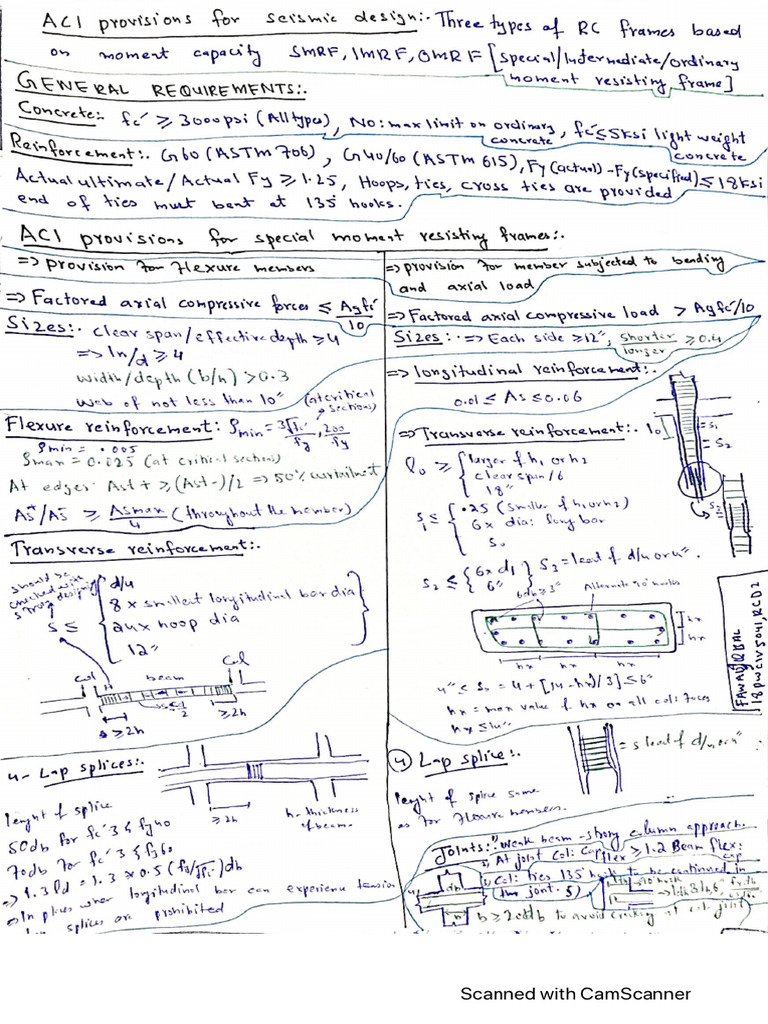 ACI provisions for seismic design:- Three types of RC frames based
on moment capacity SMRF, IMRF, OMRF [special/Intermediate/ordinary
moment resisting frame]
GENERAL REQUIREMENTS:-
Concrete:- fc' ≥ 3000psi (All types), No: max limit on ordinary concrete, fc' ≤ 5ksi light weight concrete
Reinforcement:- G60 (ASTM 706), G40/60 (ASTM 615), Fy(actual) - Fy(specified) ≤ 18ksi
Actual ultimate/Actual Fy ≥ 1.25, Hoops, ties, cross ties are provided
end of ties must bent at 135° hooks.
ACI provisions for special moment resisting frames:-
=> provision for flexure members
=> Factored axial compressive forces ≤ Agfc'/10
Sizes:- clear span/effective depth ≥ 4
=> ln/d ≥ 4
width/depth (b/h) > 0.3
web of not less than 10"
Flexure reinforcement: ρmin = 3√fc'/fy, 200/fy (at critical sections)
ρmin = .005
ρmax = 0.025 (at critical sections)
At edges: Ast+ ≥ (Ast-)/2 => 50% curtailment
As+/As- ≥ Asmax/4 (throughout the member)
Transverse reinforcement:-
should be checked with
s ≤
d/4
8 x smallest longitudinal bar dia
24x hoop dia
12"
Col beam Col
≥2h
≥2h
4- Lap splices:-
≥2h
h- thickness of beam.
lenght of splice
50db for fc' 3 & fy40
70db for fc' 3 & fy60
=> 1.3ld = 1.3 x 0.5 (fy/√fc')db
=> In places where longitudinal bar can experience tension
splices are prohibited
=> provision for member subjected to bending
and axial load
=> Factored axial compressive load > Agfc'/10
Sizes:- => Each side ≥12", shorter/longer ≥ 0.4
=> longitudinal reinforcement:-
0.01 ≤ As ≤ 0.06
=> Transverse reinforcement:-
lo
S1
S2
lo ≥
larger of h1 or h2
clear span/6
18"
S1 ≤
.25 (smaller of h1 or h2)
6x dia: long bar
So
S2
S2 ≤ {6x d1
6"} S3 = least of d/4 or 4".
6db ≥ 3"
Alternate 90° hooks
hx
hx
hx hx hx
4" ≤ So = 4 + [14-hx)/3] ≤ 6"
hx = max value of hx on all col: faces
hx ≤ 14"
FAWAD IQBAL
RCD2
4 Lap splice:-
= s least of d/4 or 4"
lenght of splice same
as for flexure members.
Joints:- Weak beam - strong column approach.
At joint Col: Cap flex ≥ 1.2 Beam flex: cap
Col: ties 135° hook to be continued in
the joint.
b ≥ 20db to avoid cracking at col: joint
Scanned with CamScanner